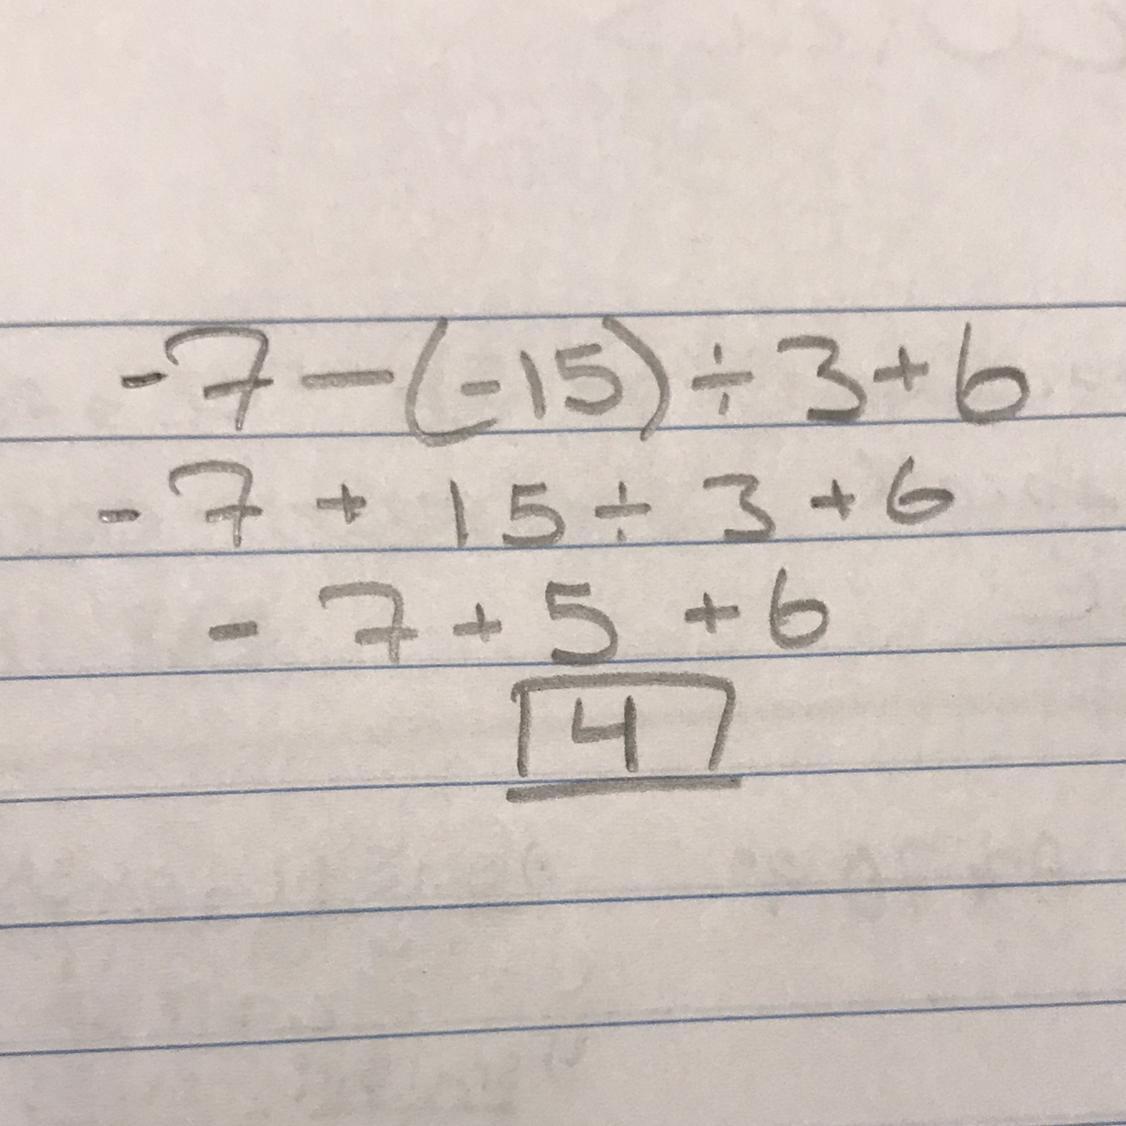 -7-(-15)÷3+6
-7+15÷3+6
-7+5+6
4